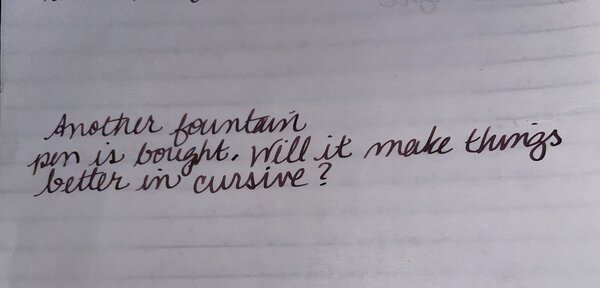 Another fountain
pen is bought. Will it make things
better in cursive?